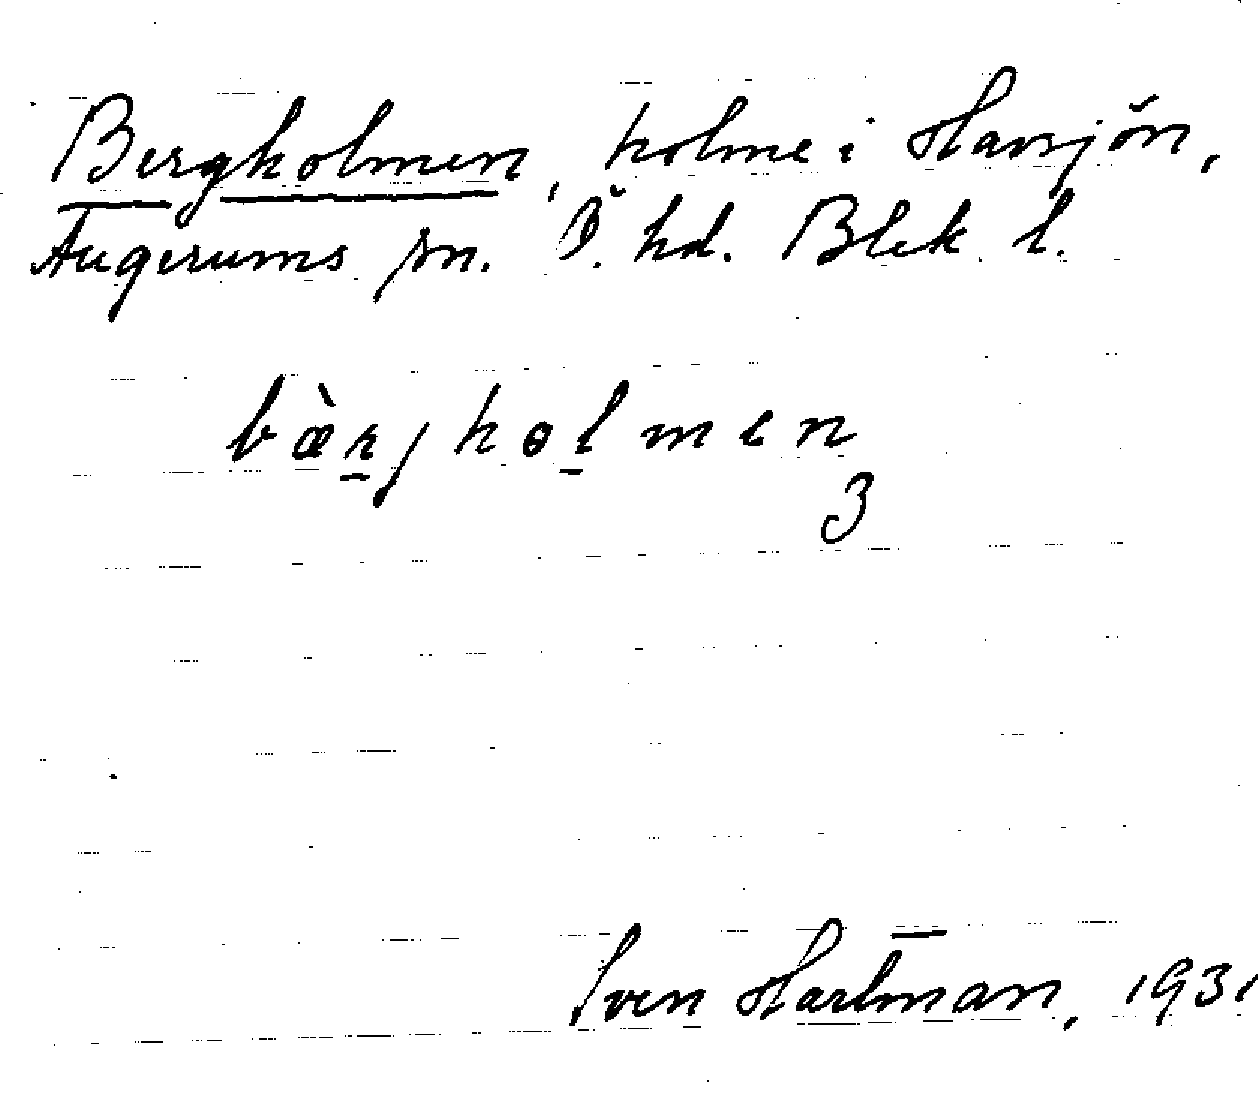 Bergholmen, holme i Havsjön,
Augerums sn. Ö. hd. Blek. l.
bæ̀rjholmen
3
Sven Hartman, 1931